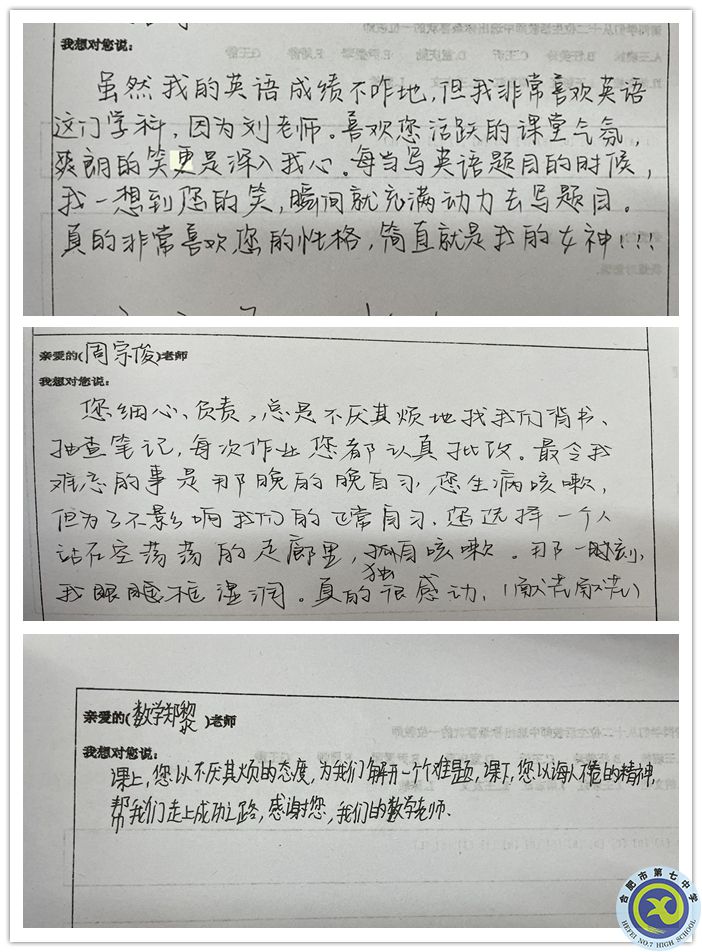 我想对您说:
虽然我的英语成绩不咋地,但我非常喜欢英语
这门学科,因为刘老师。喜欢您活跃的课堂气氛,
爽朗的笑更是深入我心。每当写英语题目的时候,
我一想到您的笑,瞬间就充满动力去写题目。
真的非常喜欢您的性格,简直就是我的女神!!!
亲爱的(周宗俊)老师
我想对您说:
您细心、负责,总是不厌其烦地找我们背书、
抽查笔记,每次作业您都认真批改。最令我
难忘的事是那晚的晚自习,您生病咳嗽,
但为了不影响我们的正常自习,您选择一个人
站在空荡荡的走廊里,孤独自咳嗽。那一时刻,
我眼眶湿润。真的很感动,(献花献花)
亲爱的(数学郑黎)老师
我想对您说:
课上,您以不厌其烦的态度,为我们解开一个个难题,课下,您以诲人不倦的精神,
帮我们走上成功之路,感谢您,我们的数学老师.
合肥市第七中学
HEFEI NO.7 HIGH SCHOOL